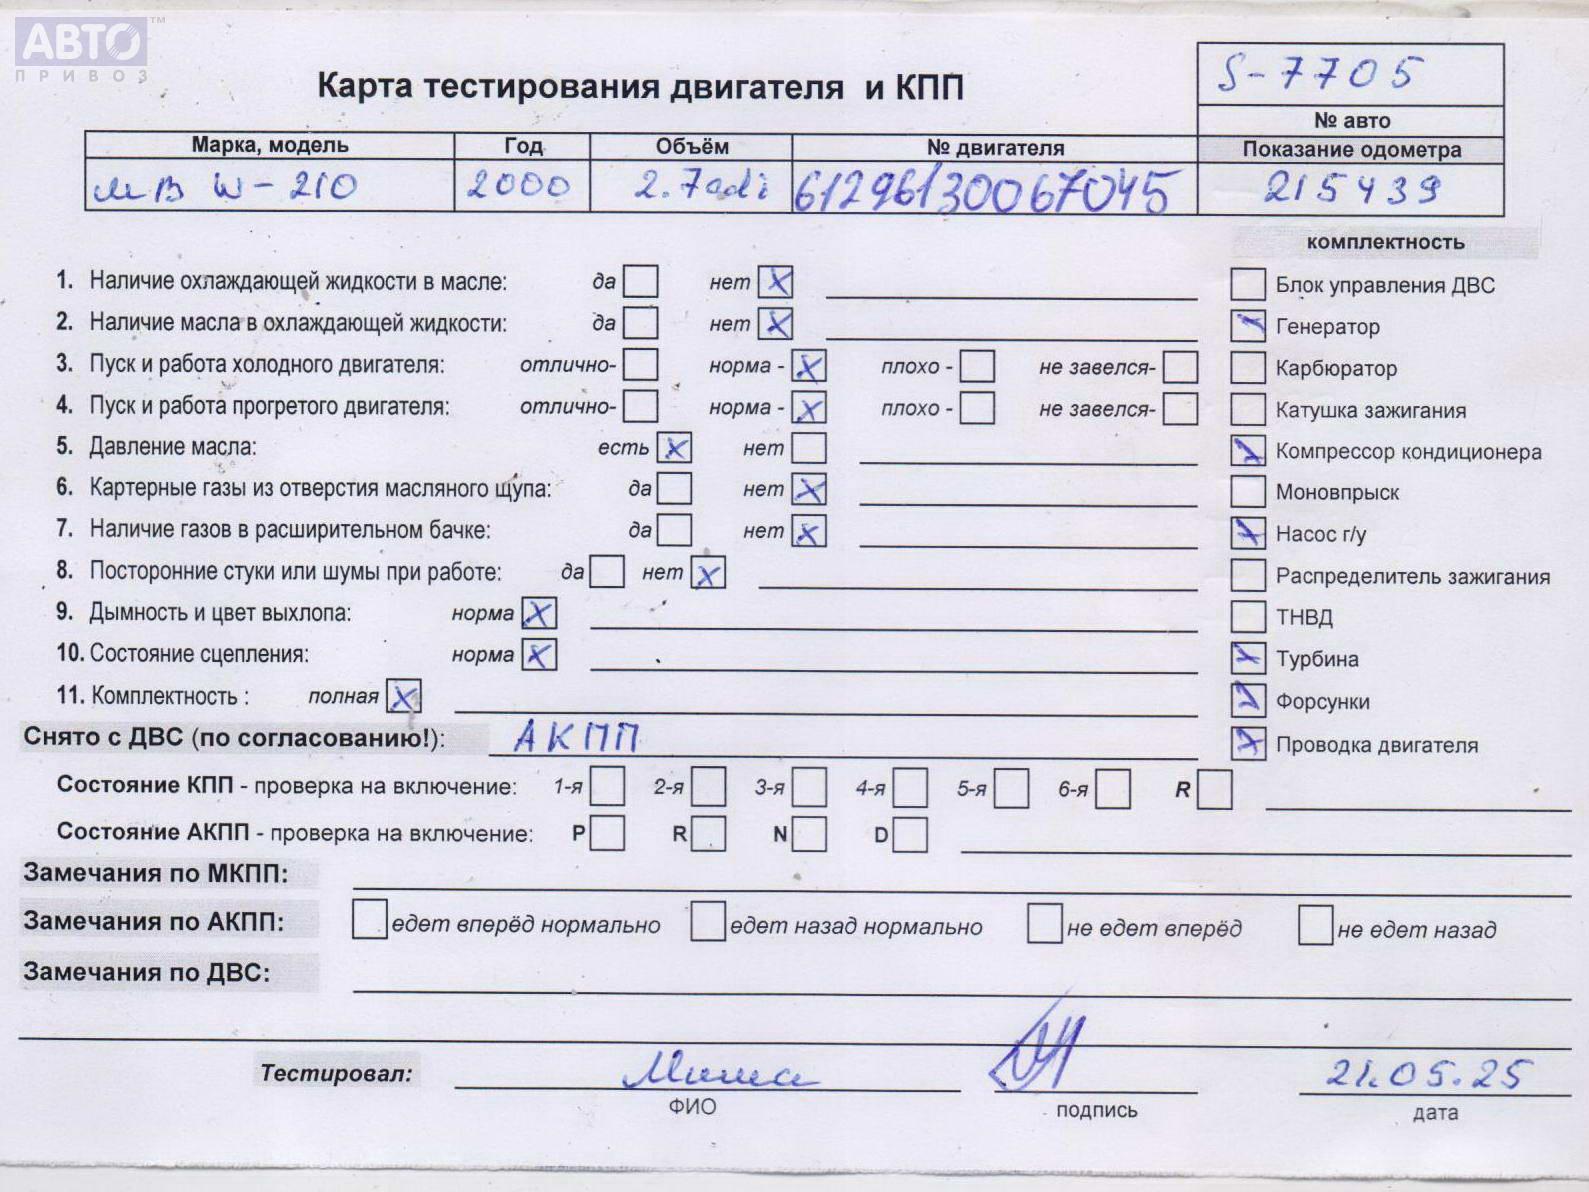 АВТО ™
ПРИВОЗ
Карта тестирования двигателя и КПП
S-7705
№ авто
Марка, модель Год Объём № двигателя Показание одометра
МВ W-210 2000 2.7cdi 61296130067045 215439
комплектность
1. Наличие охлаждающей жидкости в масле: да нет X
Блок управления ДВС
2. Наличие масла в охлаждающей жидкости: да нет X
Генератор
3. Пуск и работа холодного двигателя: отлично- норма - X плохо - не завелся-
Карбюратор
4. Пуск и работа прогретого двигателя: отлично- норма - X плохо - не завелся-
Катушка зажигания
5. Давление масла: есть X нет
Компрессор кондиционера
6. Картерные газы из отверстия масляного щупа: да нет X
Моновпрыск
7. Наличие газов в расширительном бачке: да нет X
Насос г/у
8. Посторонние стуки или шумы при работе: да нет X
Распределитель зажигания
9. Дымность и цвет выхлопа: норма X
ТНВД
10. Состояние сцепления: норма X
Турбина
11. Комплектность : полная X
Форсунки
Снято с ДВС (по согласованию!): АКПП
Проводка двигателя
Состояние КПП - проверка на включение: 1-я 2-я 3-я 4-я 5-я 6-я R
Состояние АКПП - проверка на включение: P R N D
Замечания по МКПП:
Замечания по АКПП: едет вперёд нормально едет назад нормально не едет вперёд не едет назад
Замечания по ДВС:
Тестировал: Миша 21.05.25
ФИО подпись дата